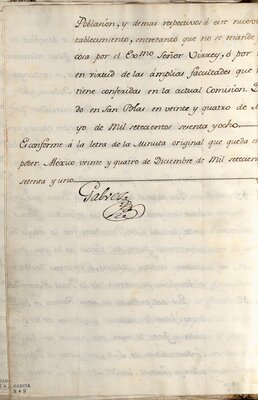 Poblacion, y demas respectivos á este nuevo
tablecimiento, entretanto que no se mande
cosa por el Exmô. Señor Virrey, ó por
en virtud de las ámplias facultades que
tiene conferidas en la actual Comision.
do en San Blas en veinte y quatro de
yo de Mil setecientos sesenta yocho.
Es conforme á la letra de la Minuta original que queda en
poder. Mexico veinte y quatro de Diciembre de Mil setecien
setenta y uno.
GARCIA